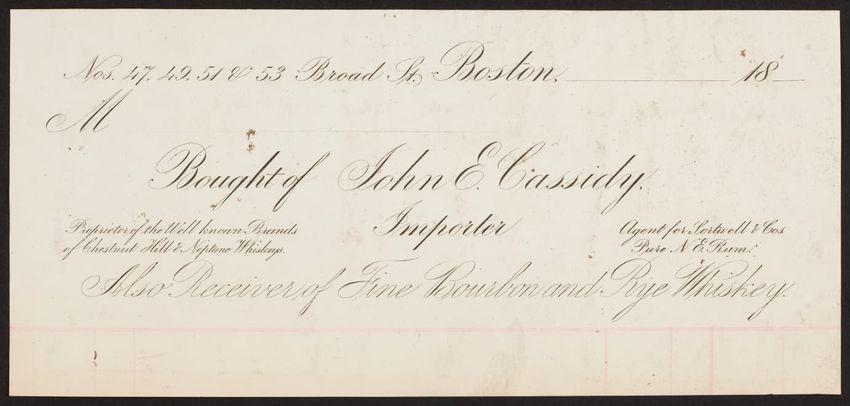 Nos. 47. 49. 51 & 53 Broad St, Boston, 18
M
Bought of John E. Cassidy.
Proprietor of the Well known Brands
of Chestnut Hill & Neptune Whiskeys.
Importer
Agent for Sortwell & Cos
Pure N.E. Rum.
Also Receiver of Fine Bourbon and Rye Whiskey.